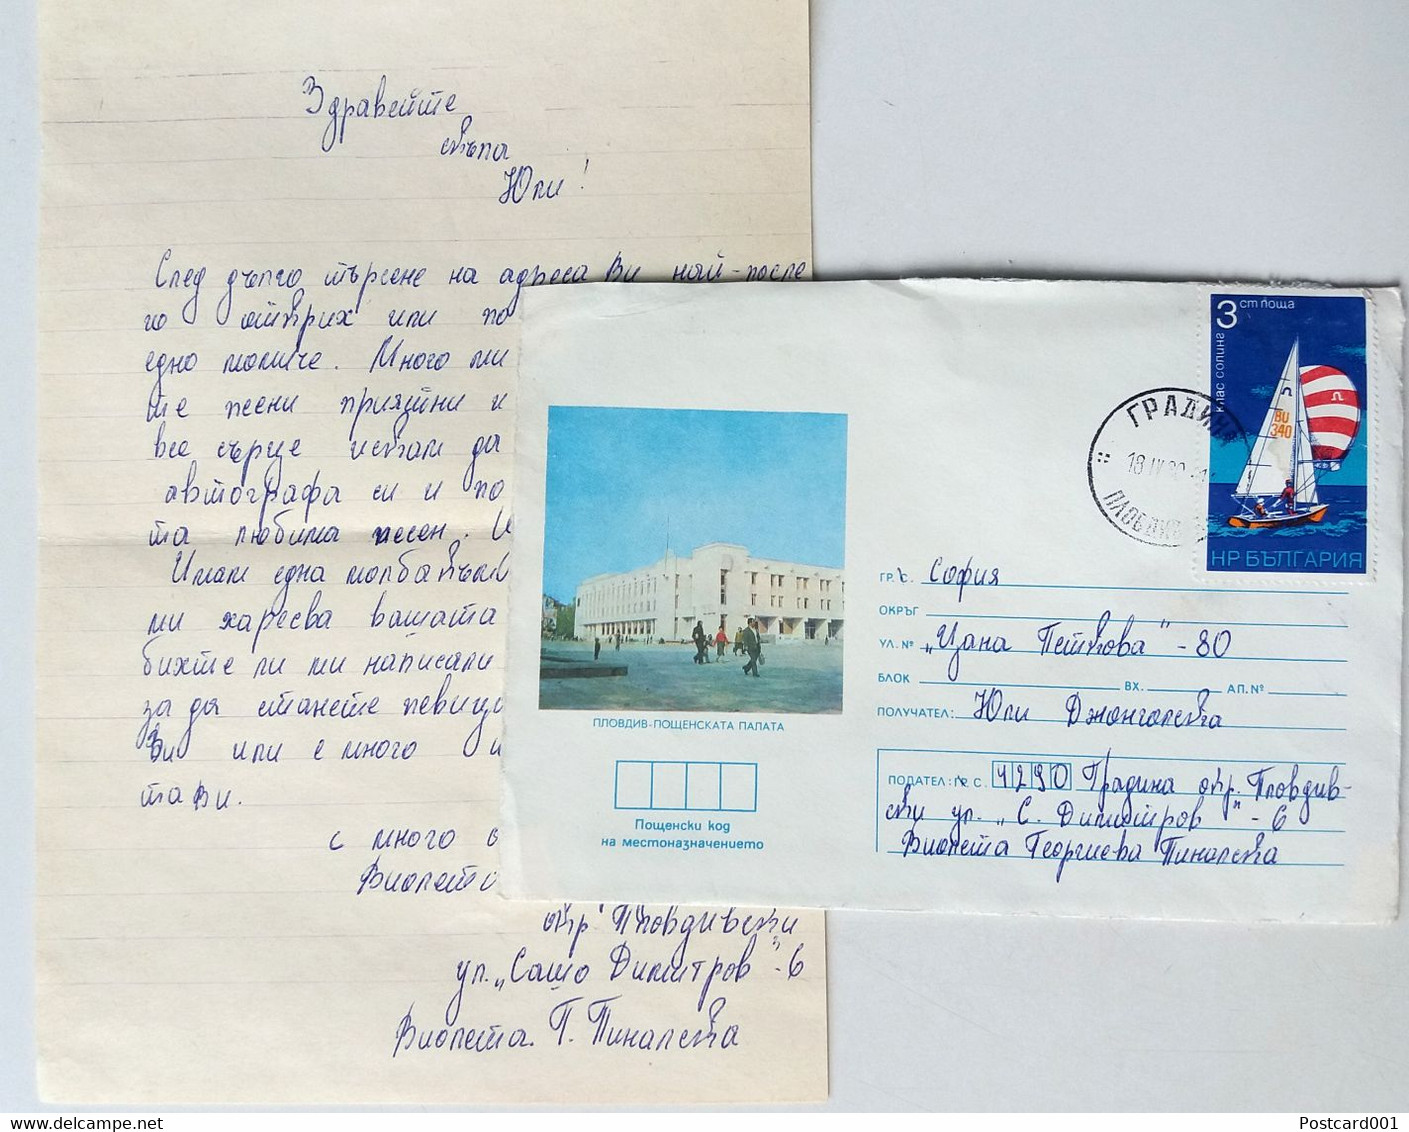 Здравейте
скъпа
Юли!
След дълго търсене на адреса Ви най-после
го открих или по
едно момиче. Много ми
те песни приятни и
все сърце искам да
автографа си и по
та любима песен. И
Имам една молба към
ми харесва вашата
бихте ли ми написали
за да станете певиц
Ви или е много и
та Ви.
с много о
Виолета
окр. Пловдивски
ул. „Сашо Димитров" - 6
Виолета. Г. Пиналска
3 ст поща
клас солинг
BU
340
НР БЪЛГАРИЯ
ГРАДИНА
18 IV
ПЛОВДИВ
ПЛОВДИВ-ПОЩЕНСКАТА ПАЛАТА
Пощенски код
на местоназначението
ГР. С. София
ОКРЪГ
УЛ. № „Цана Петкова" - 80
БЛОК ВХ. АП. №
ПОЛУЧАТЕЛ: Юли Джонголска
ПОДАТЕЛ: ГР. С. 4290 Градина окр. Пловдив-
ски ул. „С. Димитров" - 6
Виолета Георгиева Пиналска
Postcard001
delcampe.net